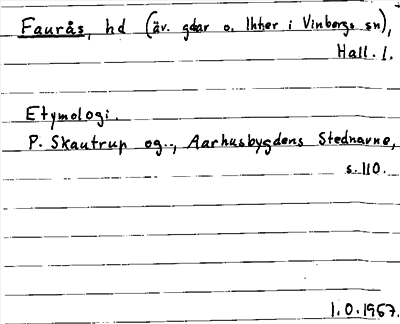 Faurås, hd (äv. gdar o. lhter i Vinbergs sn),
Hall. l.
Etymologi.
P. Skautrup og.., Aarhusbygdens Stednavne,
s. 110.
1.0.1967.